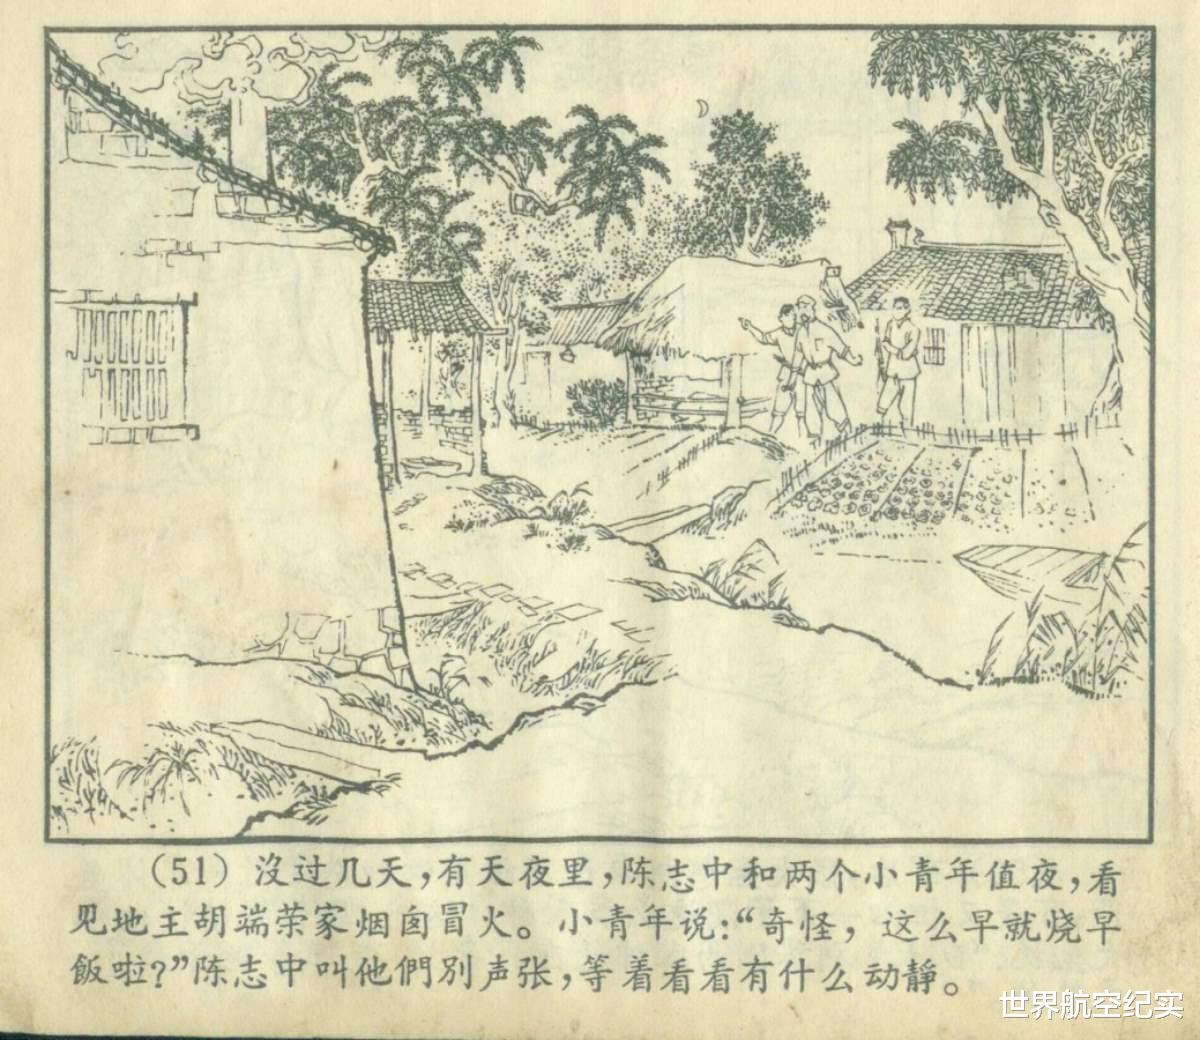 （51）沒过几天，有天夜里，陈志中和两个小青年值夜，看
见地主胡端荣家烟囱冒火。小青年说：“奇怪，这么早就烧早
飯啦？”陈志中叫他們別声张，等着看看有什么动靜。
世界航空纪实